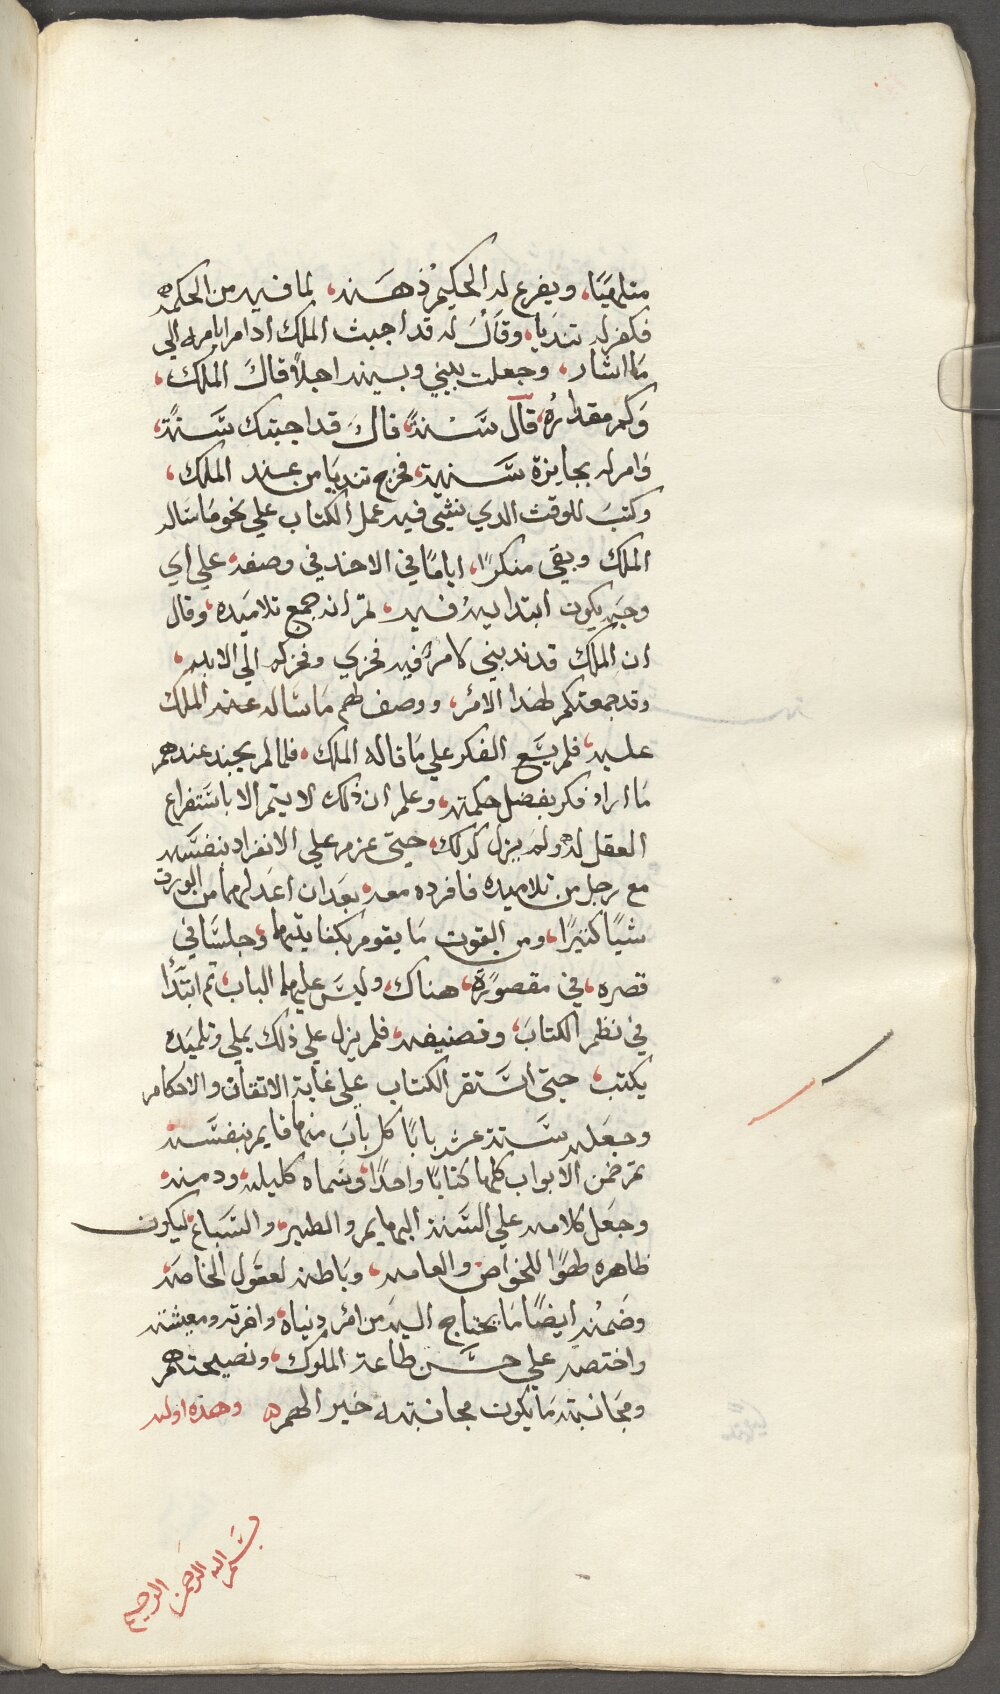 متلهيًا، ويفرع له الحكيمُ ذهنه، لما فيه من الحكمه
فكفر له تندبا، وقالَ له قد اجبت الملك ادام ايامه الي
ما اشار، وجعلت بيني وبينه اجلاً قالَ الملك،
وَكم مقداره، قال سَنةً، قالَ قد اجبتك سَنةً،
وَامر له بجايزة سَنية، فخرج تندبا من عند الملك،
وكتبَ للوقت الدي نشي فيه عمل الكتاب علي نحو مَا سَاله
الملك وبقي منكرًا، اياماً في الاخد في وصفه، علي اي
وجه يكون ابتدايه فيه، ثم انه جمع تلاميَده، وقال
ان الملك قد ندبني لامر فيه فخري وفخركم الي الابد،
وقد جمعتكم لهَدا الامر، ووصف لهم مَا سَاله عنه الملك
عليه، فلم يسَع الفكر علي مَا قاله الملك، فلما لم يجد عندهم
مَا اراد فكر بفضل حكمته، وعلم ان ذلك لا يتم الا باسَتفراع
العقل له، ولم يزل كدلك، حتي عزم علي الانفراد بنفسَه
مع رجل من تلاميده فافرده معه، بعَد ان اعَد لهما من الورق
شيًا كثيرًا، ومن القوت مَا يقوم بكفايتهما، وجلسَا في
قصره، في مقصورَة، هناك، وليسَ عليهما الباب، ثم ابتدَأ
في نظم الكتابَ، وتصنيفه، فلم يزل علي ذلك يَملي وتلميَده
يكتب، حتي اسَتقر الكتاب علي غاية الاتقان والاحكام
وجعَله سَتة عشر بابًا كل بابَ منها قايم بنفسَه،
ثم ضمن الابواب كلها كتابًا واحدًا، وسَماه كليله، ودمنه،
وجعَل كلامه علي السَنة البهايم، والطير، والسَباع، ليكون
ظاهره لهوًا للخواص، والعامه، وبَاطنه لعقول الخاصَة،
وضَمنُه ايضًا مَا يحتاج اليه من امر دنياه، واخرته ومعيشته
واختصه علي حسَن طاعة الملوك، ونصيحتهم
ومجَانبة مَا يكون مجانبته خير الهم ه وهده اوله
بسَم الله الرَحمن الرحيم